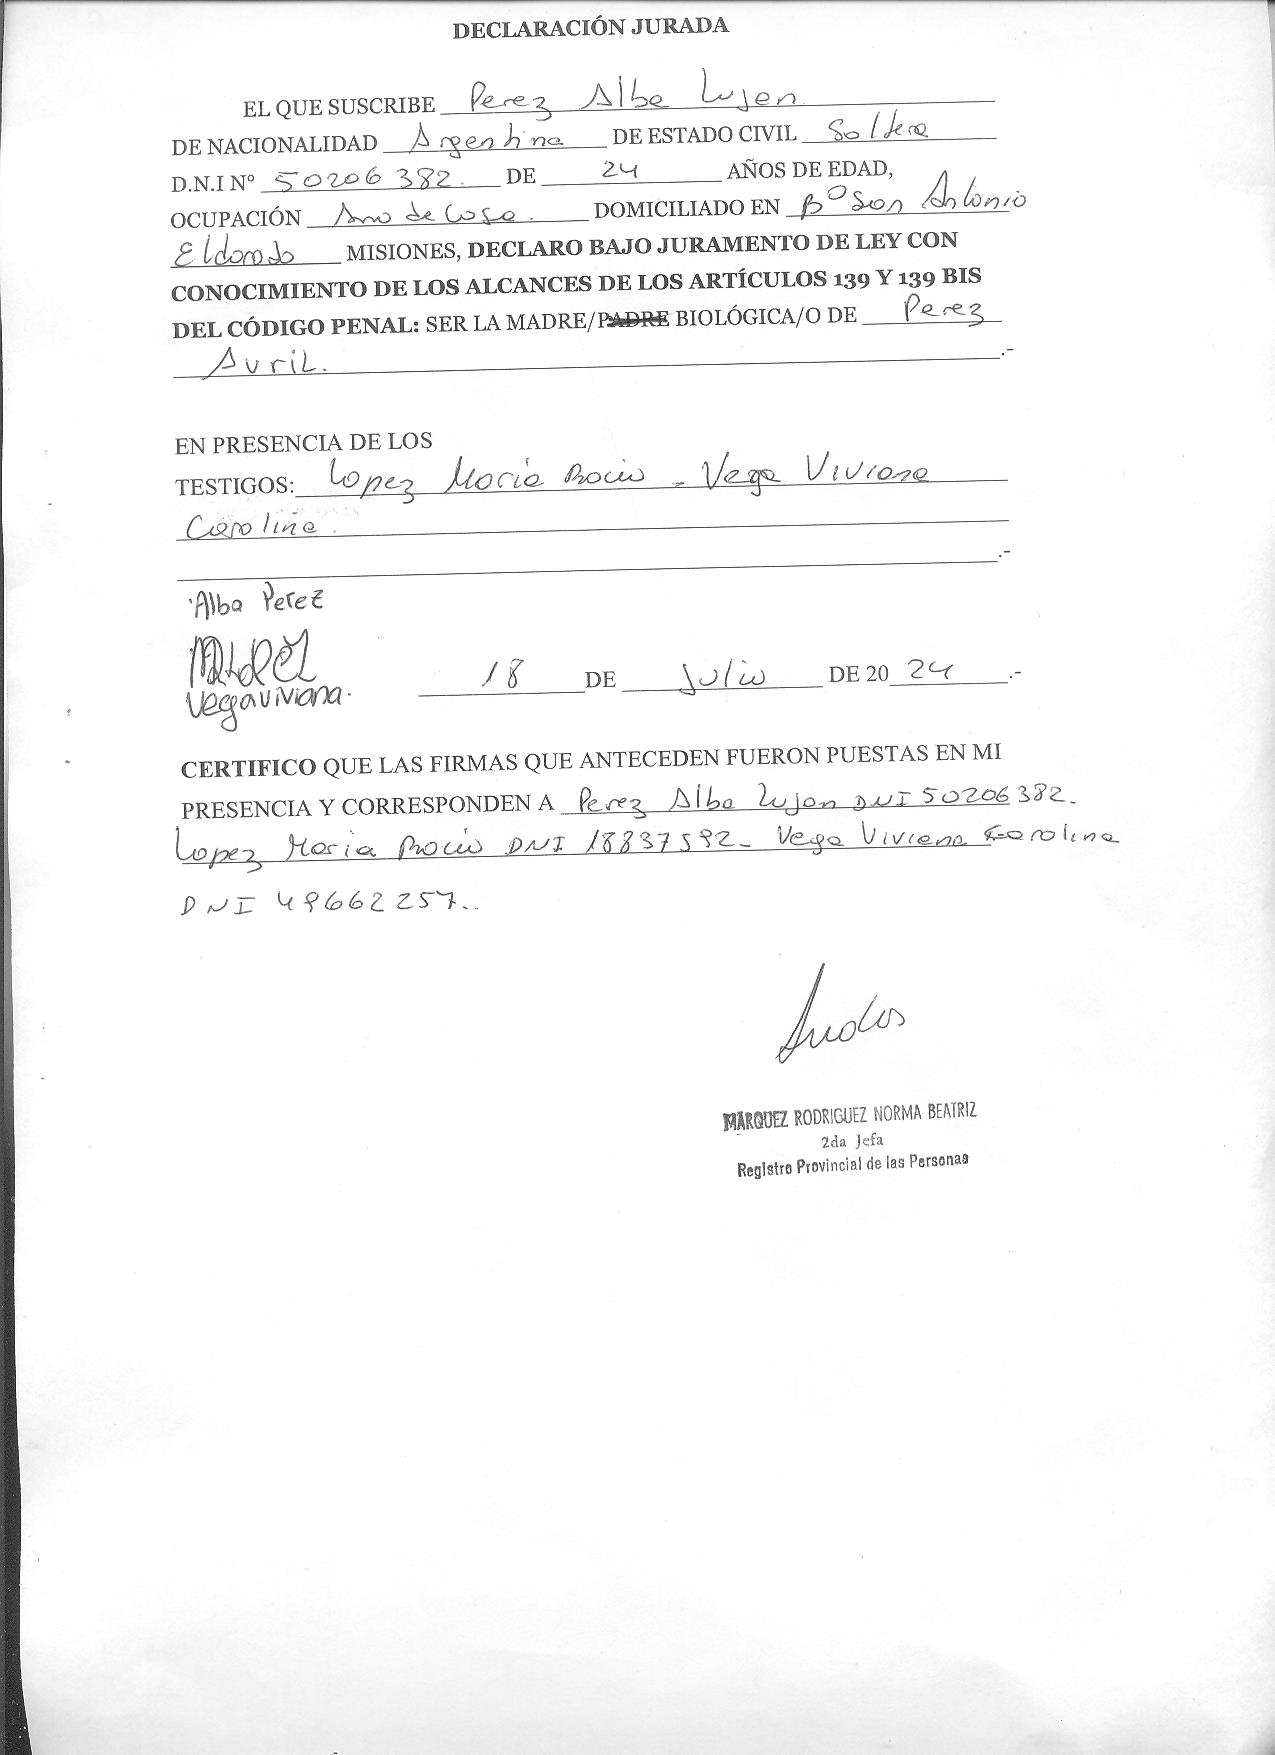 DECLARACIÓN JURADA
EL QUE SUSCRIBE Perez Alba Lujan
DE NACIONALIDAD Argentina DE ESTADO CIVIL Soltera
D.N.I Nº 50206382. DE 24 AÑOS DE EDAD,
OCUPACIÓN Ama de Casa. DOMICILIADO EN Bº San Antonio
Eldorado MISIONES, DECLARO BAJO JURAMENTO DE LEY CON
CONOCIMIENTO DE LOS ALCANCES DE LOS ARTÍCULOS 139 Y 139 BIS
DEL CÓDIGO PENAL: SER LA MADRE/PADRE BIOLÓGICA/O DE Perez
Avril. .-
EN PRESENCIA DE LOS
TESTIGOS: Lopez Maria Rocio - Vega Viviana
Carolina.
.-
Alba Perez
Vega Viviana.
18 DE Julio DE 2024 .-
CERTIFICO QUE LAS FIRMAS QUE ANTECEDEN FUERON PUESTAS EN MI
PRESENCIA Y CORRESPONDEN A Perez Alba Lujan DNI 50206382.
Lopez Maria Rocio DNI 18837592- Vega Viviana Carolina
DNI 49662257..
MARQUEZ RODRIGUEZ NORMA BEATRIZ
2da Jefa
Registro Provincial de las Personas